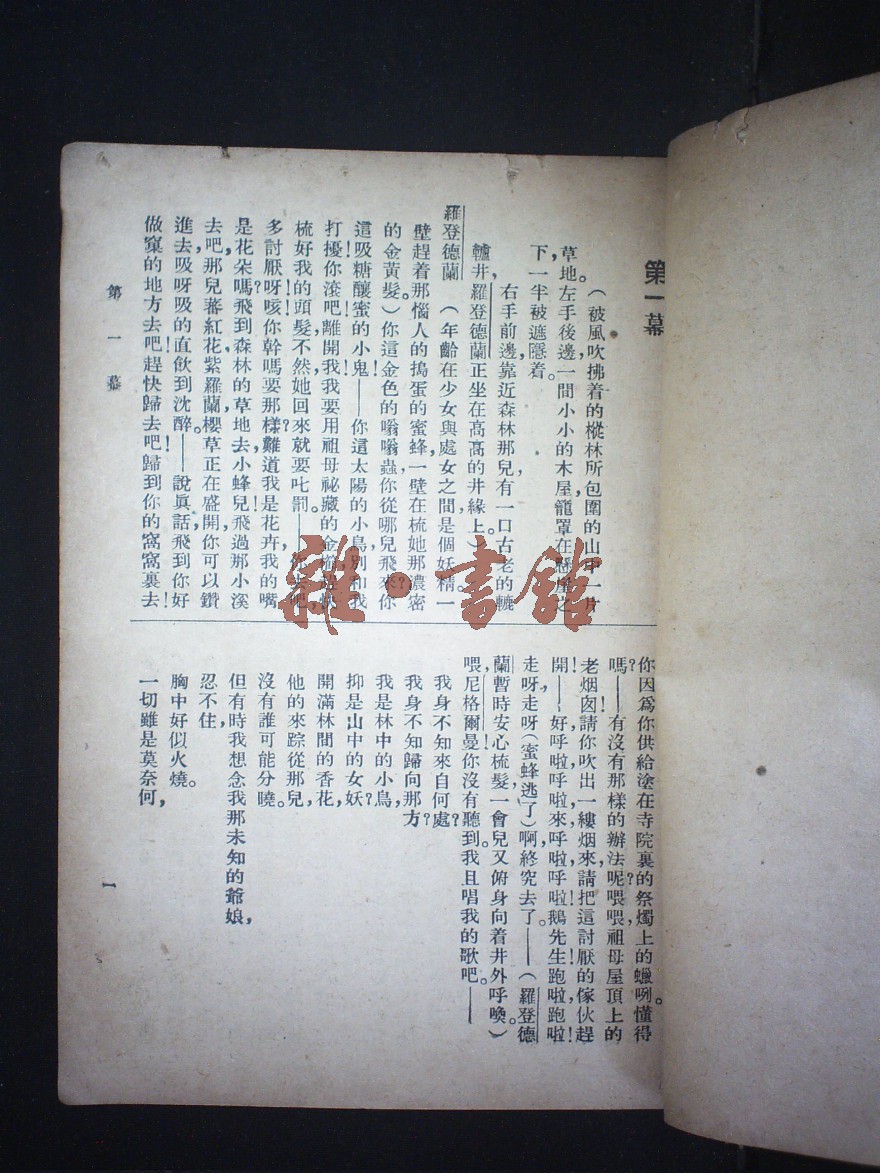 第一幕
（被風吹拂着的樅林所包圍的山中一片
草地。左手後邊，一間小小的木屋，籠罩在之
下，一半被遮隱着。
右手前邊靠近森林那兒，有一口古老的轆
轤井，羅登德蘭正坐在高高的井緣上。）
羅登德蘭　（年齡在少女與處女之間，是個妖精。一
壁趕着那惱人的搗蛋的蜜蜂，一壁在梳她那濃密
的金黃髮。）你這金色的嗡嗡蟲，你從哪兒飛來？你
這吸糖釀蜜的小鬼！——你這太陽的小鳥，別和我
打擾！你滾吧，離開我！我要用祖母祕藏的金梳趕快
梳好我的頭髮，不然她回來就要叱罰。——你去吧，
多討厭呀！咳！你幹嗎要那樣？難道我是花卉，我的嘴
是花朵嗎？飛到森林的草地去，小蜂兒，飛過那小溪
去吧，那兒蕃紅花，紫羅蘭，櫻草正在盛開，你可以鑽
進去吸呀吸的直飲到沈醉。——說眞話，飛到你好
做窠的地方去吧！趕快歸去吧！歸到你的窩窩裏去！
你因爲你供給塗在寺院裏的祭燭上的蠟咧。懂得
嗎？——有沒有那樣的辦法呢？喂喂，祖母屋頂上的
老烟囱！請你吹出一縷烟來，請把這討厭的傢伙趕
開！——好呼啦，呼啦，來！呼啦，呼啦，鵝先生！跑啦，跑啦！
走呀，走呀！（蜜蜂逃了）啊，終究去了。——（羅登德
蘭暫時安心梳髮，一會兒又俯身向着井外呼喚。）
喂，尼格爾曼！你沒有聽到。我且唱我的歌吧。——
我身不知來自何處？
我身不知歸向那方？
我是林中的小鳥，
抑是山中的女妖？
開滿林間的香花，
他的來踪從那兒，
沒有誰可能分曉。
但有時我想念我那未知的爺娘，
忍不住，
胸中好似火燒。
一切雖是莫奈何，
第一幕
一
雜·書館